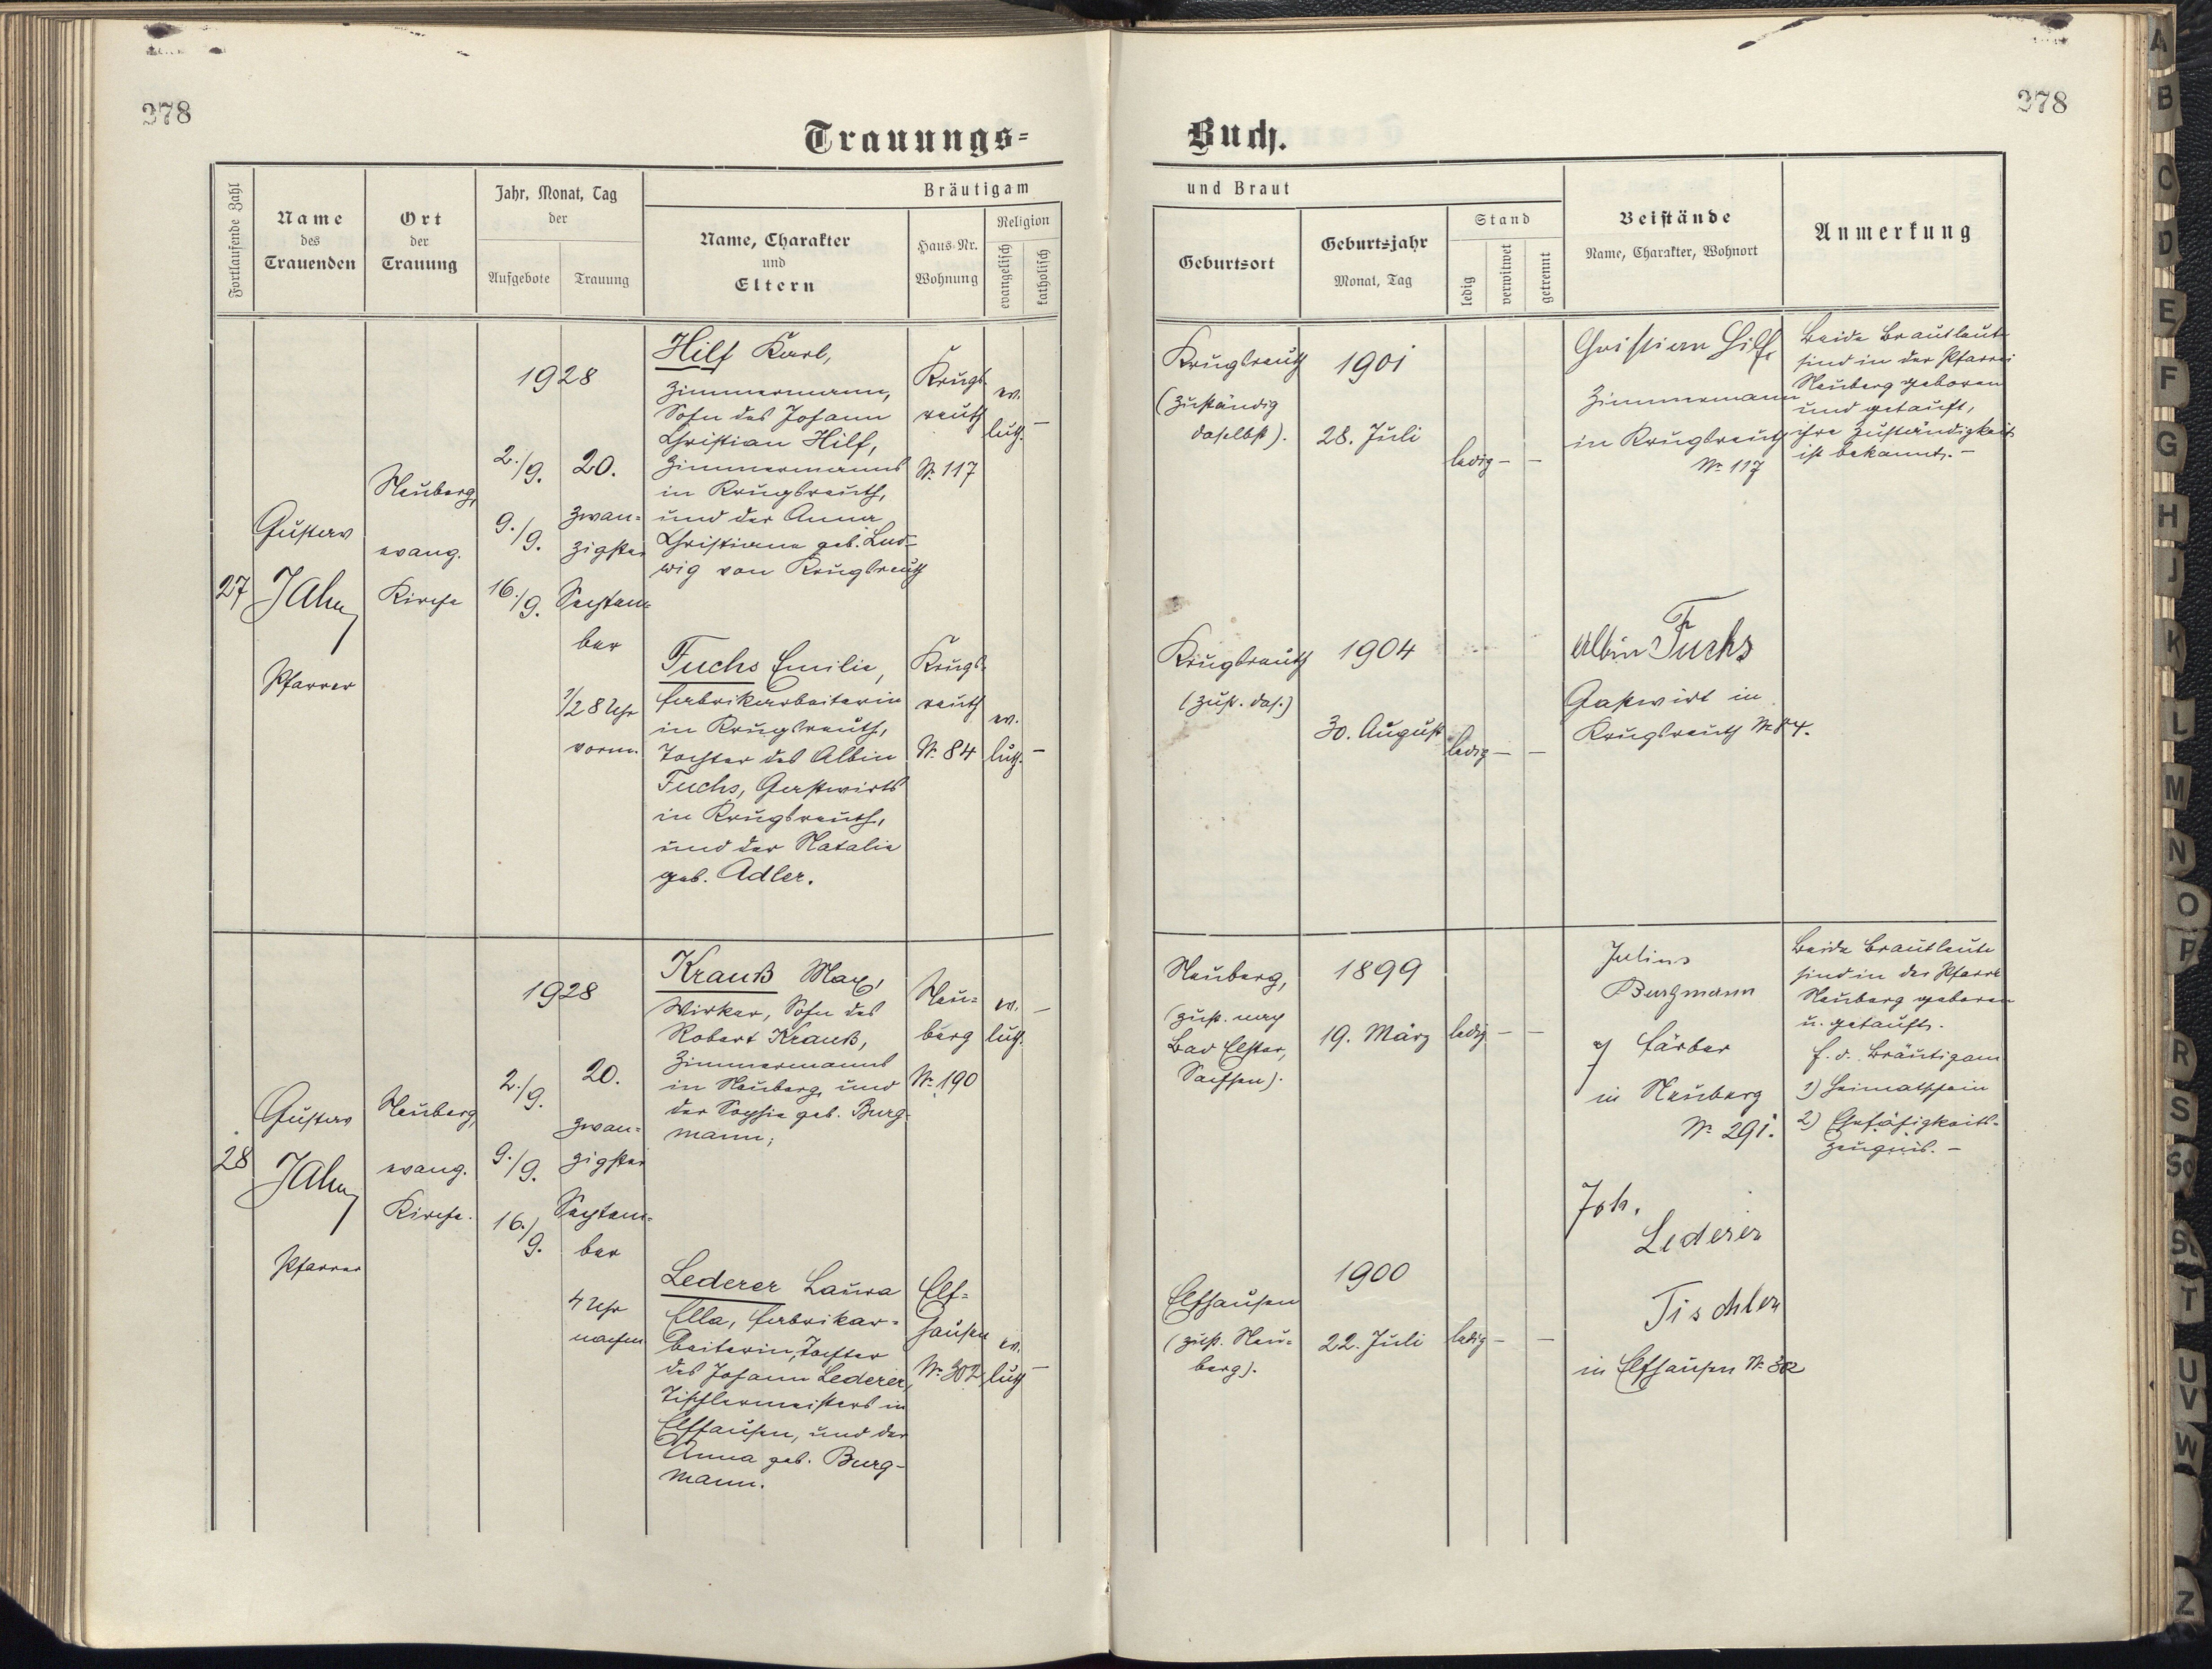 278
278
Trauungs=
Buch.
Fortlaufende Zahl
Name
des
Trauenden
Ort
der
Trauung
Jahr, Monat, Tag
der
Aufgebote
Trauung
Bräutigam
Name, Charakter
und
Eltern
Haus-Nr.
Wohnung
Religion
evangelisch
katholisch
und Braut
Geburtsort
Geburtsjahr
Monat, Tag
Stand
ledig
verwitwet
getrennt
Beistände
Name, Charakter, Wohnort
Anmerkung
27
Gustav
JAhn
Pfarrer
Neuberg,
evang.
Kirche
1928
2./9.
9./9.
16./9.
20.
zwan=
zigster
Septem=
ber
1/2 8 Uhr
vorm.
Hilf Karl,
Zimmermann,
Sohn des Johann
Christian Hilf,
Zimmermanns
in Krugsreuth,
und der Anna
Christiana geb. Lud=
wig von Krugsreuth
Krugs-
reuth
Nr. 117
ev.
luth.
—
Fuchs Emilie,
Fabrikarbeiterin
in Krugsreuth,
Tochter des Albin
Fuchs, Gastwirts
in Krugsreuth,
und der Natalie
geb. Adler.
Krugs-
reuth
Nr. 84
ev.
luth.
—
Krugsreuth
(zuständig
daselbst).
1901
28. Juli
ledig — —
Christian Hilf,
Zimmermann
in Krugsreuth
Nr. 117
Beide Brautleute
sind in der Pfarrei
Neuberg geboren
und getauft,
ihre Zuständigkeit
ist bekannt. —
Krugsreuth
(zust. das.)
1904
30. August
ledig — —
Albin Fuchs
Gastwirt in
Krugsreuth Nr. 84.
28
Gustav
JAhn
Pfarrer
Neuberg,
evang.
Kirche.
1928
2./9.
9./9.
16./9.
20.
zwan=
zigster
Septem=
ber
4 Uhr
nachm
Krauß Max,
Wirker, Sohn des
Robert Krauß,
Zimmermanns
in Neuberg, und
der Sophie geb. Burg-
mann;
Neu=
berg
Nr. 190
ev.
luth.
—
Lederer Laura
Ella, Fabrikar=
beiterin, Tochter
des Johann Lederer,
Tischlermeisters in
Elfhausen, und der
Anna geb. Burg-
mann.
Elf=
hausen
Nr. 302
ev.
luth
—
Neuberg,
(zust. nach
Bad Elster,
Sachsen).
1899
19. März
ledig — —
Julius
Burgmann
Färber
in Neuberg
Nr. 291.
Beide Brautleute
sind in der Pfarre
Neuberg geboren
u. getauft.
f. d. Bräutigam
1) Heimatschein
2) Ehefähigkeits-
zeugnis. —
Elfhausen
(zust. Neu=
berg).
1900
22. Juli
ledig — —
Joh.
Lederer
Tischler
in Elfhausen Nr. 302
A
B
C
D
E
F
G
H
J
K
L
M
N
O
P
R
S
Sch
St
T
U
V
W
Z